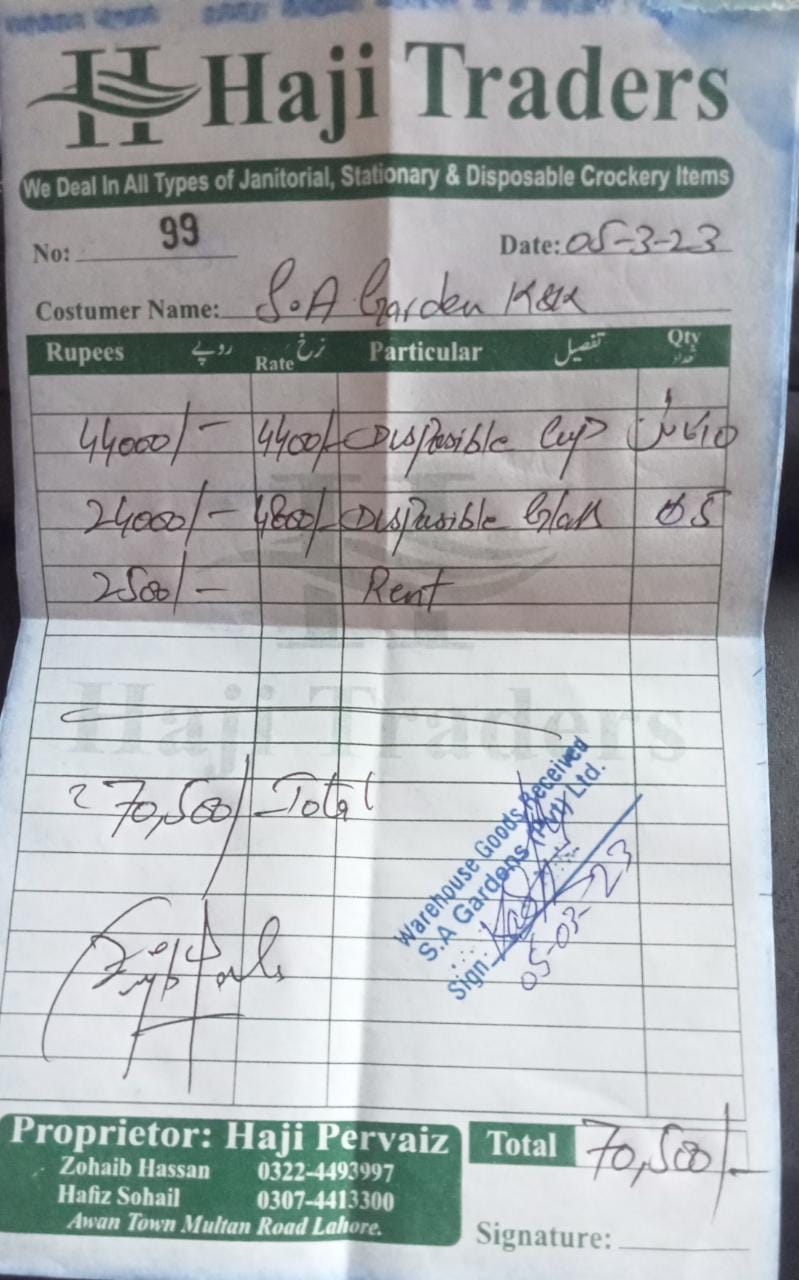 Haji Traders
We Deal In All Types of Janitorial, Stationary & Disposable Crockery Items
No: 99 Date: 05-3-23
Costumer Name: S.A Garden K&K
Rupees روپے Rate نرخ Particular تفصیل Qty تعداد
44000/- 4400/- Disposible Cup 10
24000/- 4800/- Disposible Glass 05
2500/- Rent
70,500/ Total
Warehouse Goods Received
S.A Gardens (Pvt) Ltd.
Sign:
05-03-23
Haji Traders
Proprietor: Haji Pervaiz
Zohaib Hassan 0322-4493997
Hafiz Sohail 0307-4413300
Awan Town Multan Road Lahore.
Total 70,500/-
Signature: